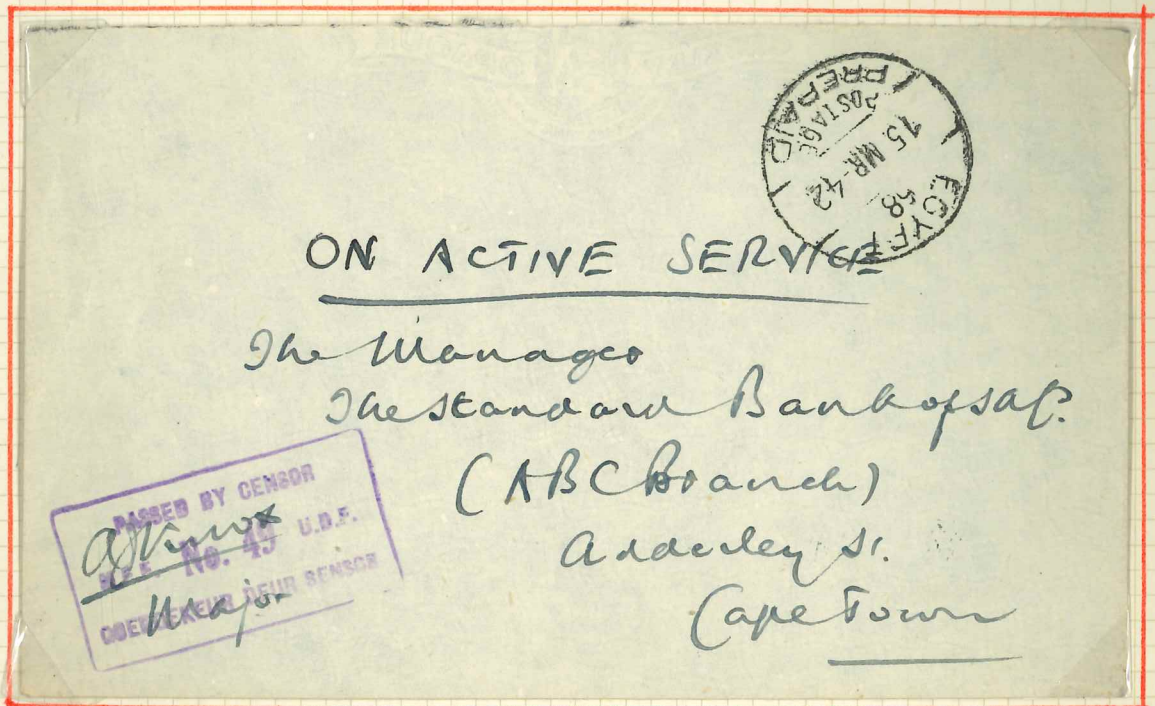 POSTAGE
PREPAID
15 MR-42
58
EGYPT
ON ACTIVE SERVICE
The Manager
The Standard Bank of SAf.
(ABC Branch)
Adderley St.
Cape Town
PASSED BY CENSOR
No. 49 U.D.F.
GOEDGEKEUR DEUR SENSOR
Major